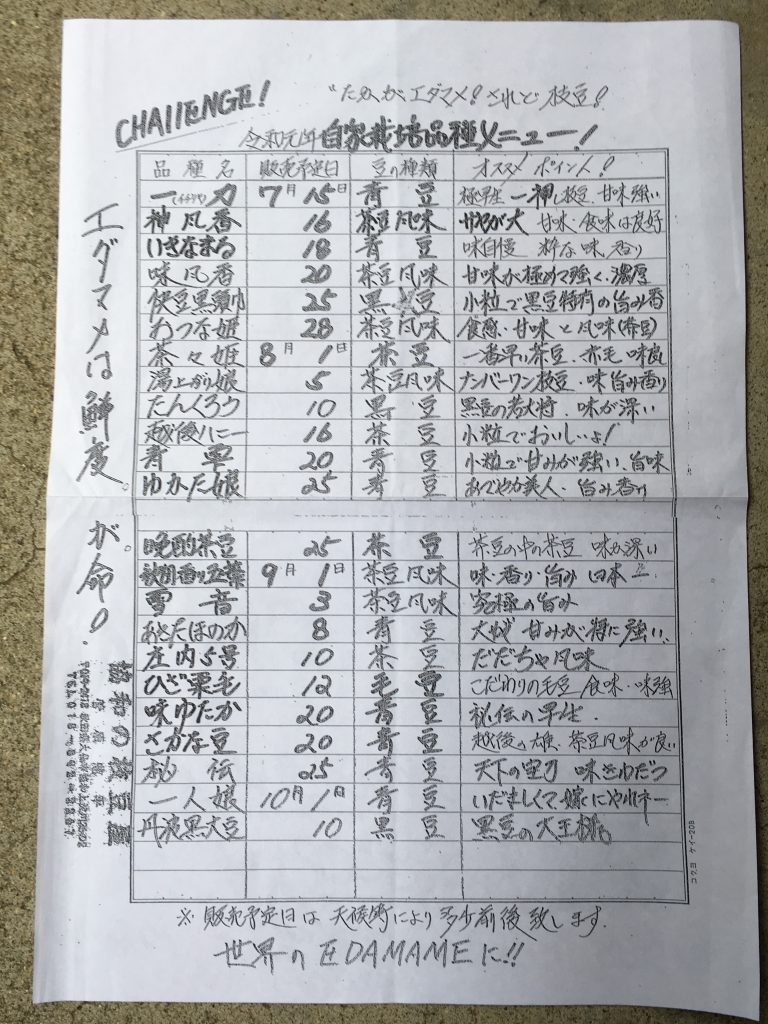 CHAllENGE!
"たかがエダマメ! されど 枝豆!
令和元年 自家栽培品種メニュー!
品種名 販売予定日 豆の種類 オススメ ポイント!
一力 7月15日 青豆 極早生 一押し枝豆、甘味強い
神風香 16 茶豆風味 さやが大 甘味・食味は良好
いきなまる 18 青豆 味自慢 粋な味、香り
味風香 20 茶豆風味 甘味が極めて強く、濃厚
伊豆黒頭巾 25 黒豆 小粒で黒豆特有の旨み香
おつな姫 28 茶豆風味 食感・甘味と風味(茶豆)
茶々姫 8月1日 茶豆 一番早い茶豆、赤毛、味良
湯上がり娘 5 茶豆風味 ナンバーワン枝豆・味旨み香り
たんくろう 10 黒豆 黒豆の若大将、味が深い
越後ハニー 16 茶豆 小粒でおいしいよ!
青雫 20 青豆 小粒で甘みが強い、旨味
ゆかた娘 25 青豆 あでやか美人・旨み香り
晩酌茶豆 25 茶豆 茶豆の中の茶豆 味が深い
秋田香り五葉 9月1日 茶豆風味 味・香り・旨み 日本一
雪音 3 茶豆風味 究極の旨み
あきたほのか 8 青豆 大サヤ 甘みが特に強い、
庄内5号 10 茶豆 だだちゃ風味
ひざ栗毛 12 毛豆 こだわりの毛豆 食味・味強
味ゆたか 20 青豆 秘伝の早生、
さかな豆 20 青豆 越後の雄、茶豆風味が良い
秘伝 25 青豆 天下の宝刀 味きわだつ
一人娘 10月1日 青豆 いたましくて嫁にやれネー
丹波黒大豆 10 黒豆 黒豆の大王様。
※ 販売予定日は天候等により多少前後致します。
世界のEDAMAMEに!!
エダマメは鮮度。が命!。
協和の枝豆屋
コクヨ ケイ-20B